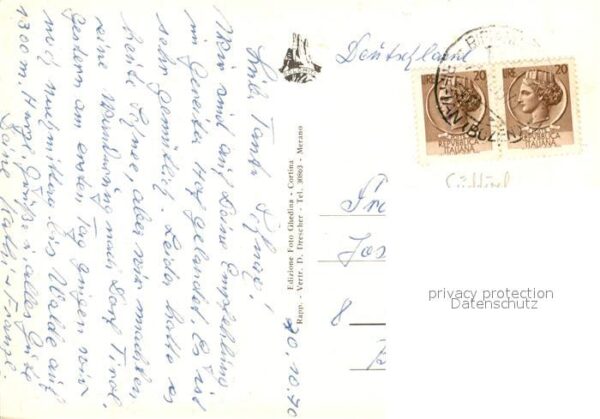 20.10.70
Liebe Tante
Wir sind auf Deine Empfehlung
im Gereiter Hof gelandet. Es ist
sehr gemütlich. Leider hatte es
heute Schnee, aber wir machten
eine Wanderung nach Dorf Tirol.
Gestern am ersten Tag gingen wir
auf
1300 m. Herzl. Grüße u. alles Gute
Deine Kathi + Franzl
Edizione Foto Ghedina - Cortina
Rapp. - Vertr. D. Drescher - Tel. 30863 - Merano
Deutschland
LIRE 20
REPVBBLICA
ITALIANA
LIRE 20
REPVBBLICA
ITALIANA
(BOLZANO)
Südtirol
Fr
Jos
8
privacy protection
Datenschutz